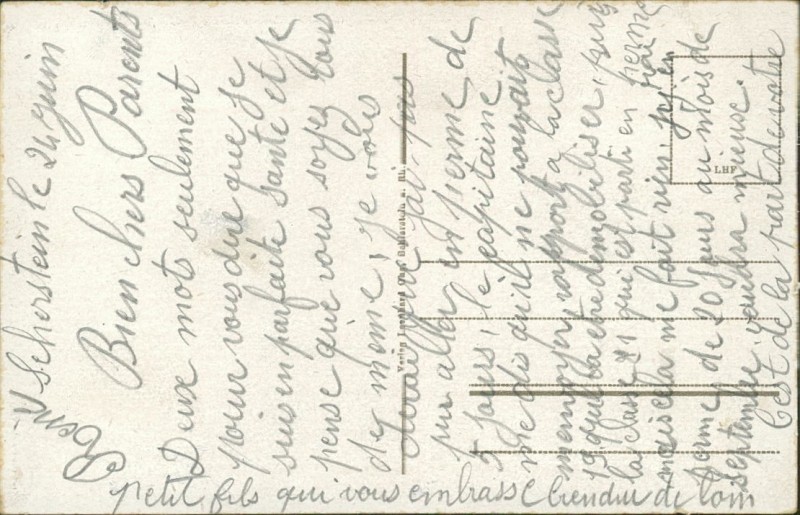 Scherstein le 24 juin
Bien chers Parents
Deux mots seulement
pour vous dire que je
suis en parfaite santé et je
pense que vous soyez tous
de même, je vous
dirai que jai pas
pu aller en perme de
5 jours, le capitaine
me dis qu'il ne pouvait
rapport a la classe
19 qui va etre demobiliser,
la classe 21 qui est parti en perme
mais cela me fait rien, jej
perme de 20 jours au mois de
septembre vaudra mieuse.
C'est de la part de votre
petit fils qui vous embrasse biendu de loin
Verlag Leonhard
LHF